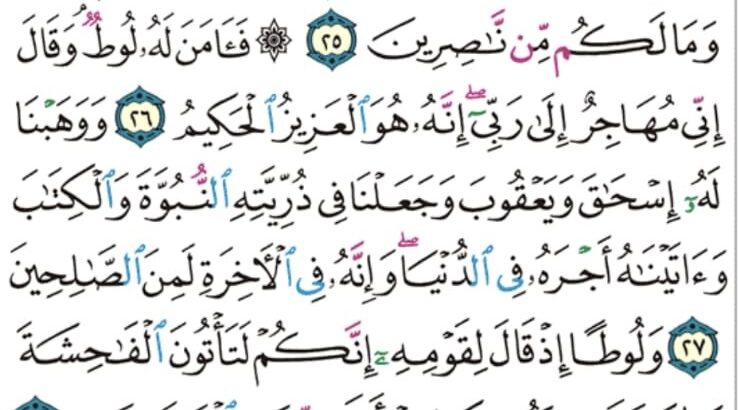 وَمَا لَكُم مِّن نَّـٰصِرِينَ ٢٥ ۞ فَـَٔامَنَ لَهُۥ لُوطٌۘ وَقَالَ
إِنِّى مُهَاجِرٌ إِلَىٰ رَبِّىٓۖ إِنَّهُۥ هُوَ ٱلْعَزِيزُ ٱلْحَكِيمُ ٢٦ وَوَهَبْنَا
لَهُۥٓ إِسْحَـٰقَ وَيَعْقُوبَ وَجَعَلْنَا فِى ذُرِّيَّتِهِ ٱلنُّبُوَّةَ وَٱلْكِتَـٰبَ
وَءَاتَيْنَـٰهُ أَجْرَهُۥ فِى ٱلدُّنْيَاۖ وَإِنَّهُۥ فِى ٱلْـَٔاخِرَةِ لَمِنَ ٱلصَّـٰلِحِينَ
٢٧ وَلُوطًا إِذْ قَالَ لِقَوْمِهِۦٓ إِنَّكُمْ لَتَأْتُونَ ٱلْفَـٰحِشَةَ